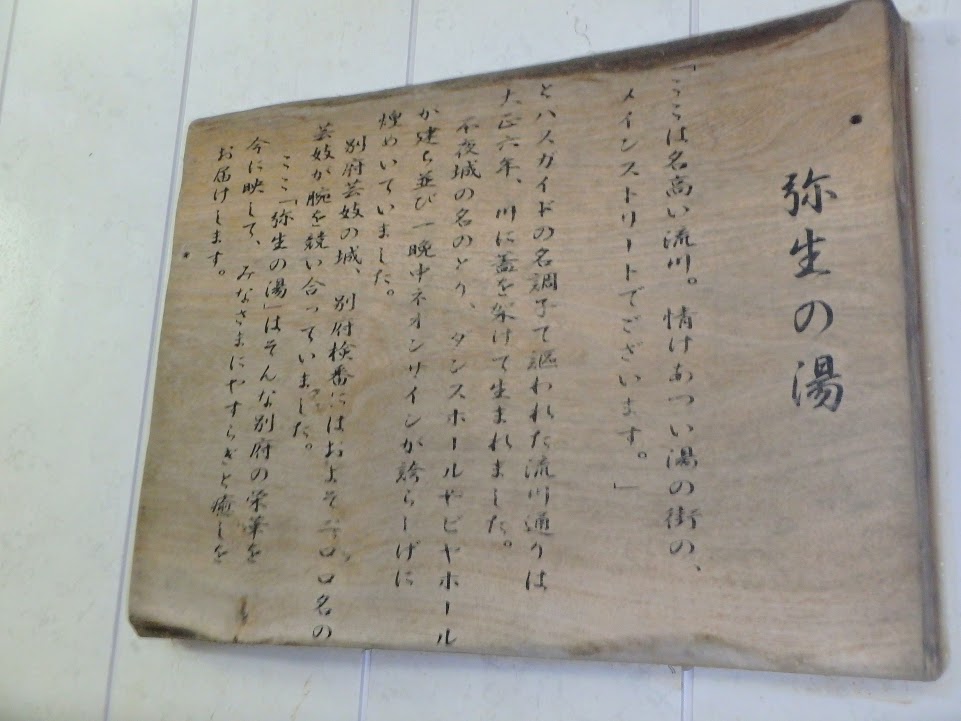 弥生の湯
「ここは名高い流川。情けあつい湯の街の、
メインストリートでございます。」
とバスガイドの名調子で謳われた流川通りは
大正六年、川に蓋を架けて生まれました。
不夜城の名のとり、ダンスホールやビヤホール
が建ち並び一晩中ネオンサインが誇らしげに
煌めいていました。
別府芸妓の城、別府検番にはおよそ名の
芸妓が腕を競い合っていました。
ここ「弥生の湯」はそんな別府の栄華を
今に映して、みなさまにやすらぎと癒しを
お届けします。